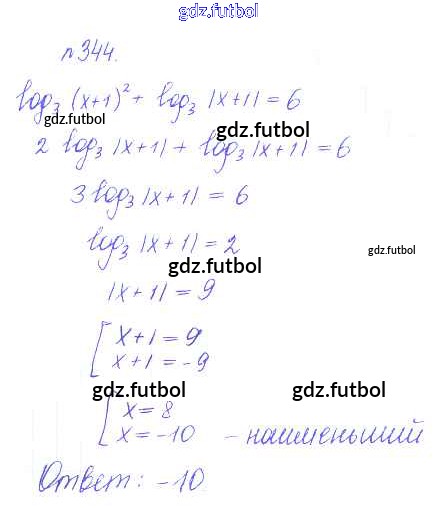 gdz.futbol
gdz.futbol
n 344.
log₃ (x+1)² + log₃ |x+1| = 6
gdz.futbol
gdz.futbol
2 log₃ |x+1| + log₃ |x+1| = 6
3 log₃ |x+1| = 6
log₃ |x+1| = 2
gdz.futbol
gdz.futbol
|x+1| = 9
[ x+1 = 9
x+1 = -9
gdz.futbol
gdz.futbol
[ x = 8
x = -10 - наименьший
gdz.futbol
Ответ: -10